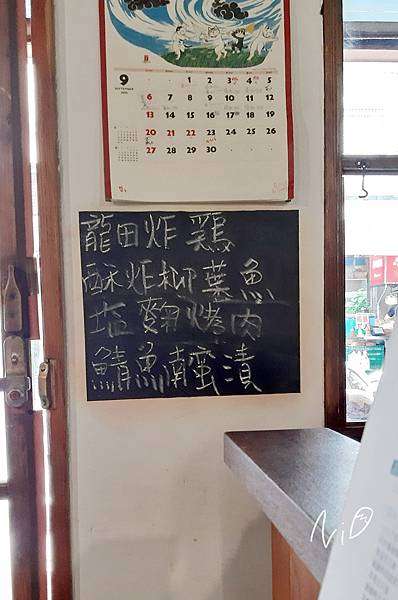 9
SEPTEMBER
1 2 3 4 5
6 7 8 9 10 11 12
13 14 15 16 17 18 19
20 21 22 23 24 25 26
27 28 29 30
龍田炸鶏
酥炸柳葉魚
塩麴烤肉
鯖魚南蛮漬
NiO